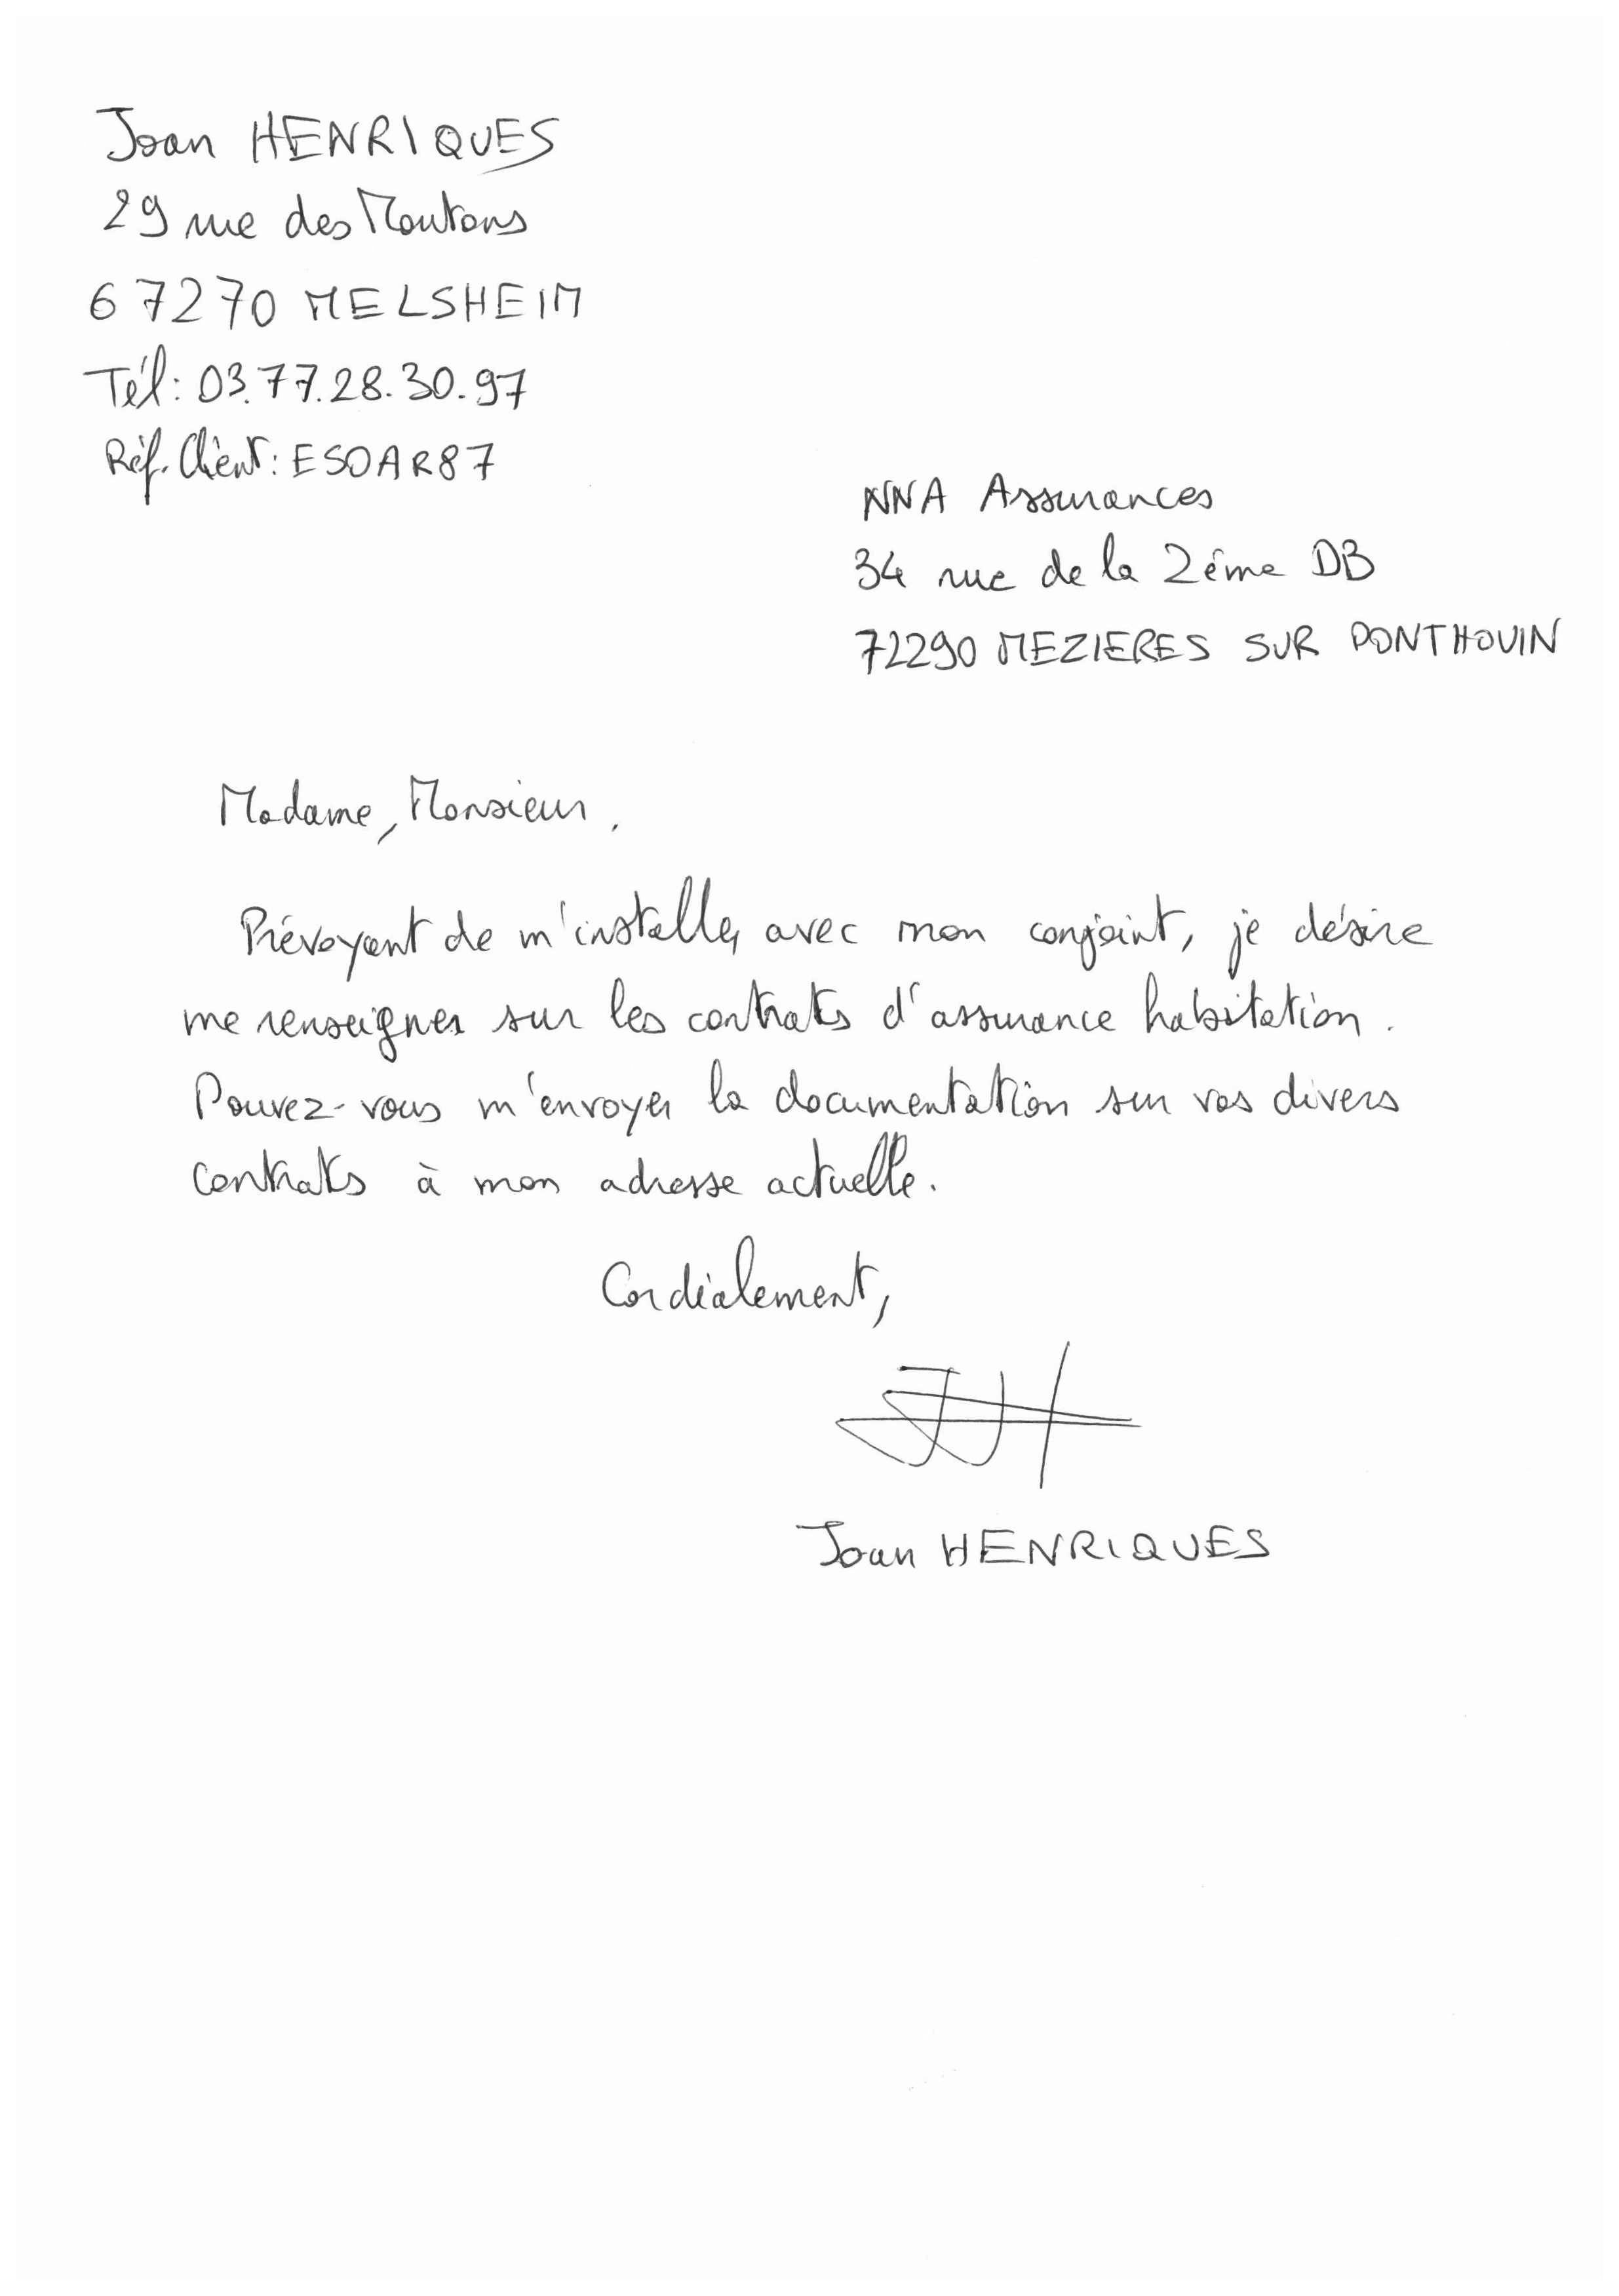 Joan HENRIQUES
29 rue des Moutons
67270 MELSHEIM
Tél: 03.77.28.30.97
Réf. Client: ESOAR87
NNA Assurances
34 rue de la 2ème DB
72290 MEZIERES SUR PONTHOUIN
Madame, Monsieur,
Prévoyant de m'installer avec mon conjoint, je désire
me renseigner sur les contrats d'assurance habitation.
Pouvez-vous m'envoyer la documentation sur vos divers
contrats à mon adresse actuelle.
Cordialement,
JH
Joan HENRIQUES